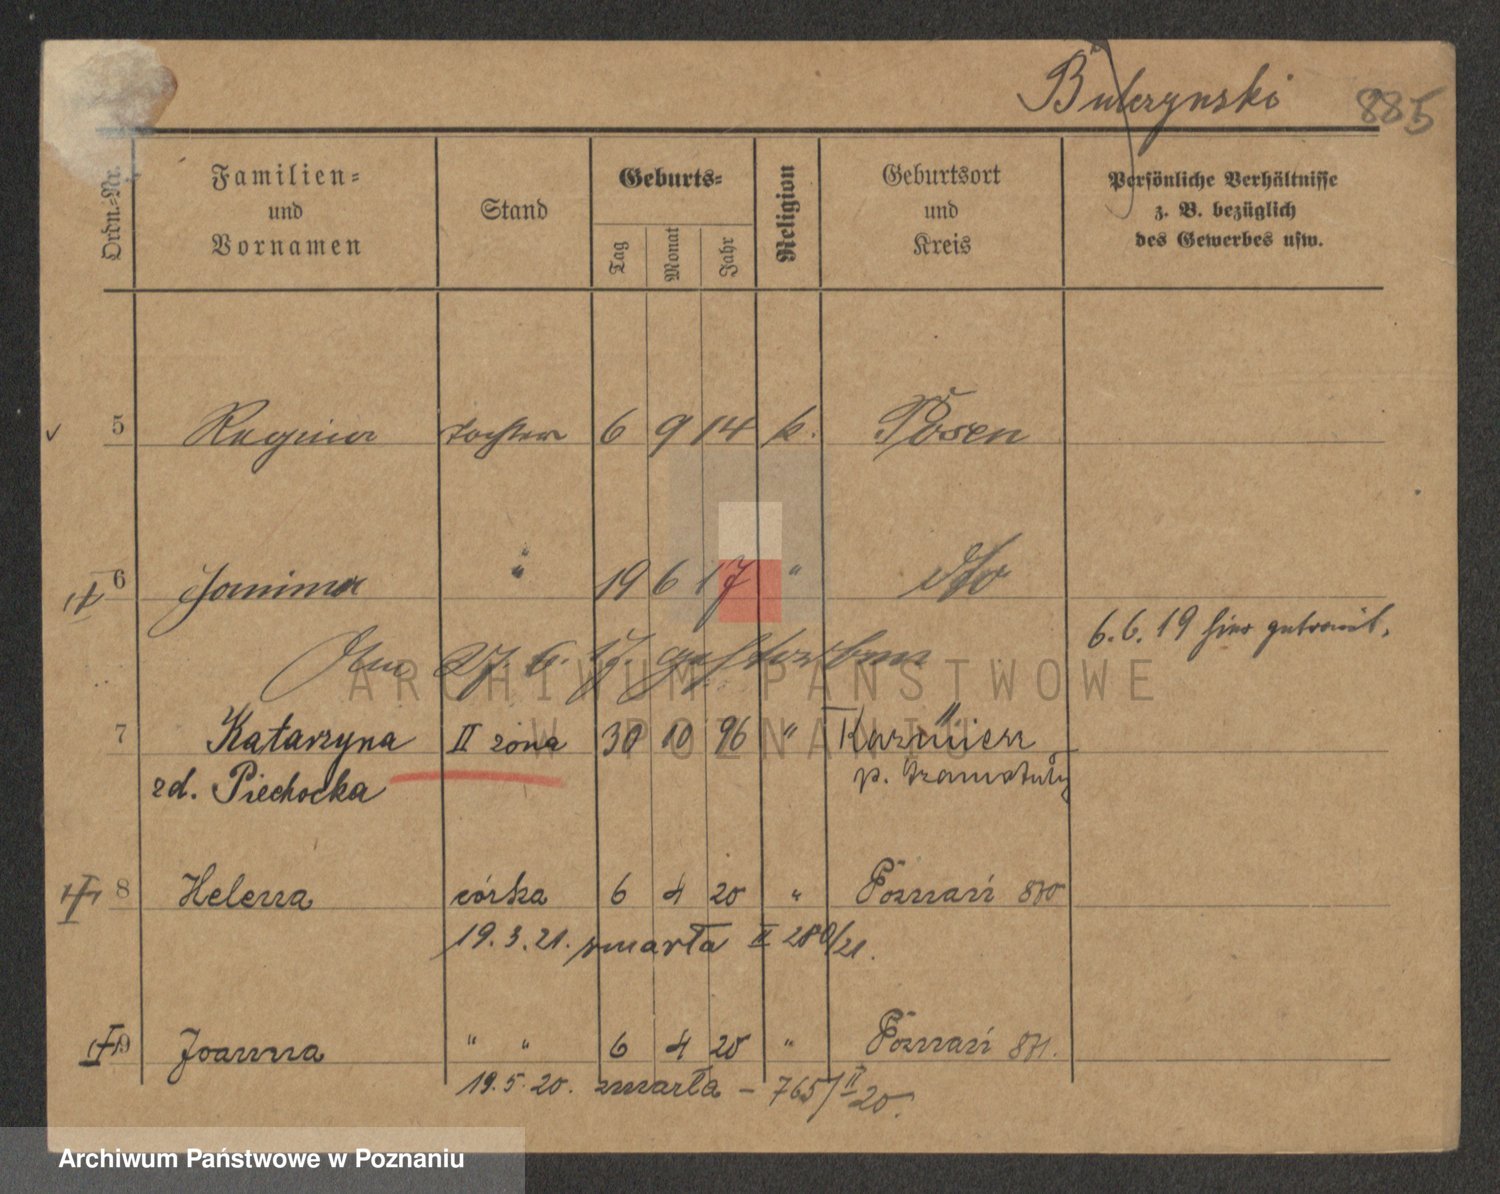 Bulczynski 885
Ordn.-Nr.
Familien- und Vornamen
Stand
Geburts-
Tag Monat Jahr
Religion
Geburtsort und Kreis
Persönliche Verhältnisse z. B. bezüglich des Gewerbes usw.
5 Regina Tochter 6 9 14 k. Posen
6 Janina " 19 6 17 " dto
Am 27. 6. 17. gestorben
6. 6. 19 hier getraut.
7 Katarzyna II żona 30 10 96 " Kazmierz
zd. Piechocka p. Szamotuły
8 Helena córka 6 4 20 " Poznań 870
19. 3. 21. zmarła II 280/21.
9 Joanna " " 6 4 20 " Poznań 871.
19. 5. 20. zmarła – 765/II 20.
ARCHIWUM PAŃSTWOWE
W POZNANIU
Archiwum Państwowe w Poznaniu